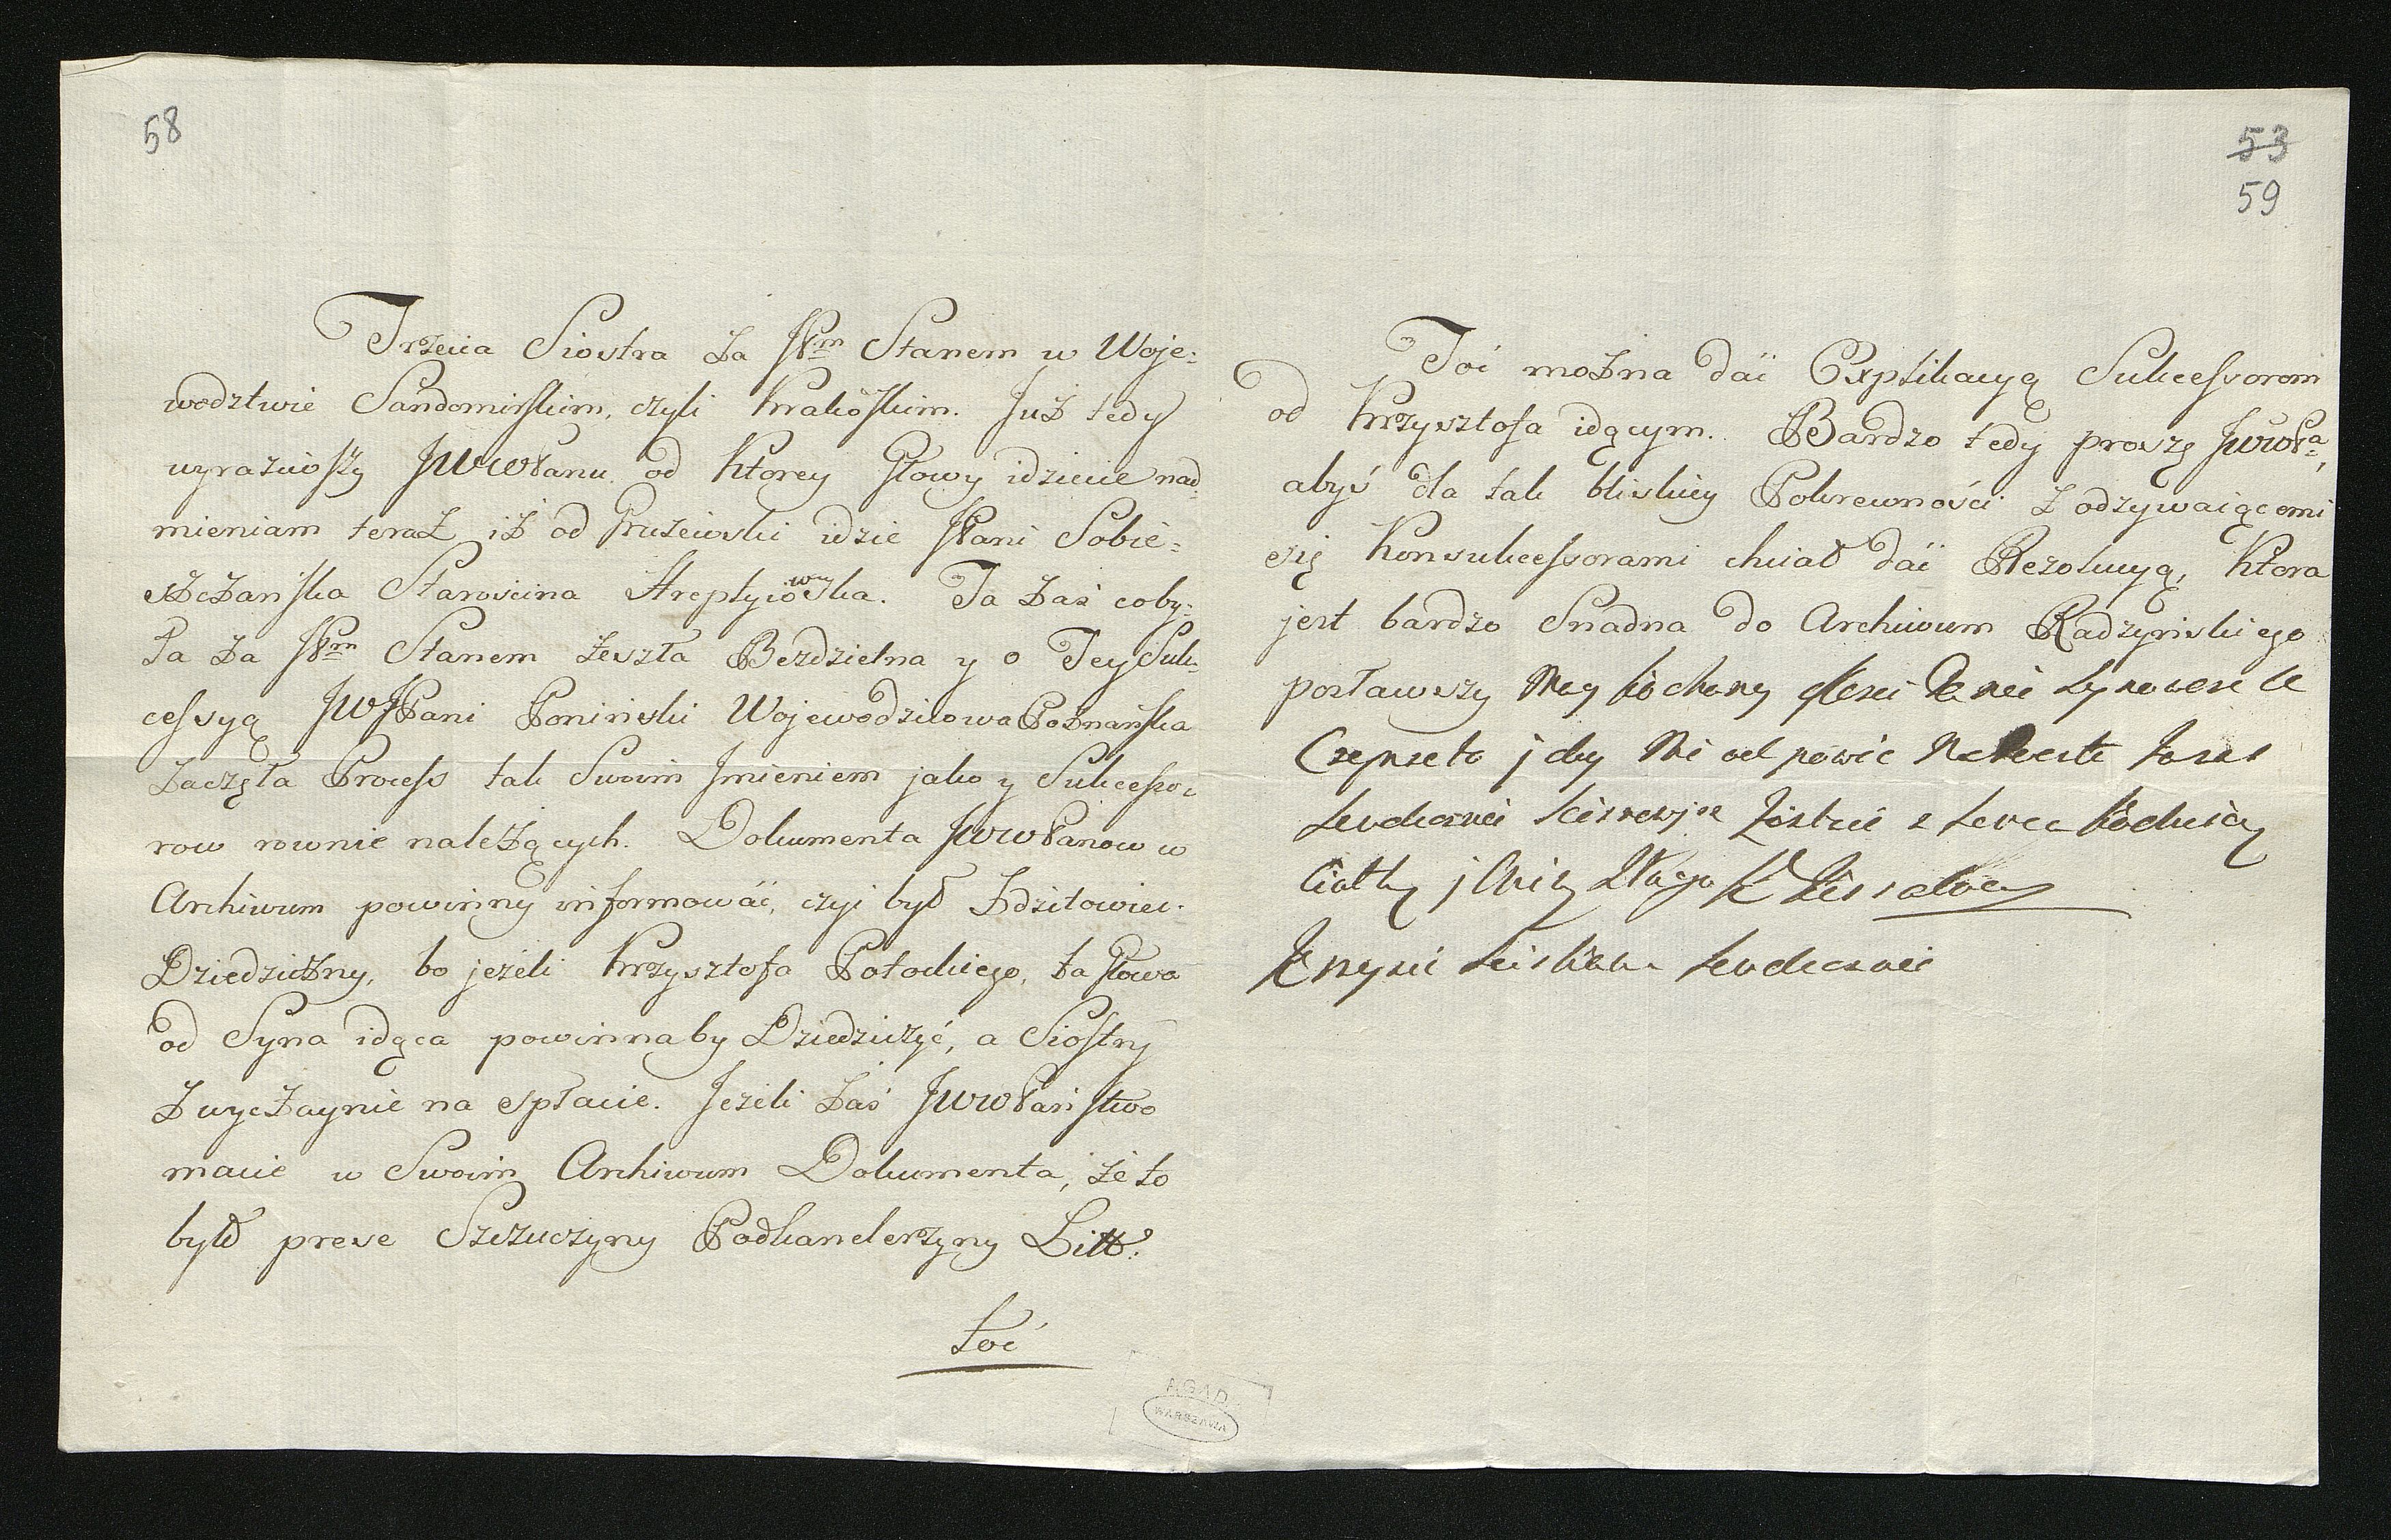 58
Trzecia Siostra za JPm Stanem w Woje=
wodztwie Sandomirskim, czyli Krakoskim. Już tedy
wyraziwszy JWWPanu od ktorey Głowy idziecie nad=
mieniam teraz iż od Prużewski idzie JPani Sobie=
szczańska Starościna Streptyiowska. Ta zaś coby=
ła za JPm Stanem zeszła Bezdzietna y o Tey Suk=
cessyą JWJPani Poniński Wojewodzicowa Poznańska
zaczęła Process tak Swoim Jmieniem jako y Sukcesso=
row rownie należących. Dokumenta JWWPanow w
Archiwum powinny informować, czyi był Zdzitowiec
Dziedziczny, bo jeżeli Krzysztofa Potockiego, ta Głowa
od Syna idąca powinnaby Dziedziczyć, a Siostry
zwyczaynie na spłacie. Jeżeli zaś JWWPaństwo
macie w Swoim Archiwum Dokumenta, że to
było preve Szczuczyny Podkanclerzyny Litt:
toć
AGAD
WARSZAWA
53
59
Toć można dać Explikacyą Sukcessorom
od Krzysztofa idącym. Bardzo tedy proszę JWWPa,
abyś dla tak bliskiey Pokrewności z odzywaiącemi
się Konsukcessorami chciał dać Rezolucyą, ktora
jest bardzo Snadna do Archiwum Radzyńskiego
posławszy Moy kochany
j aby Mi odpowie
Serdecznie zostaie z serca kochaiący
Ciotką j Sługą
Serdecznie